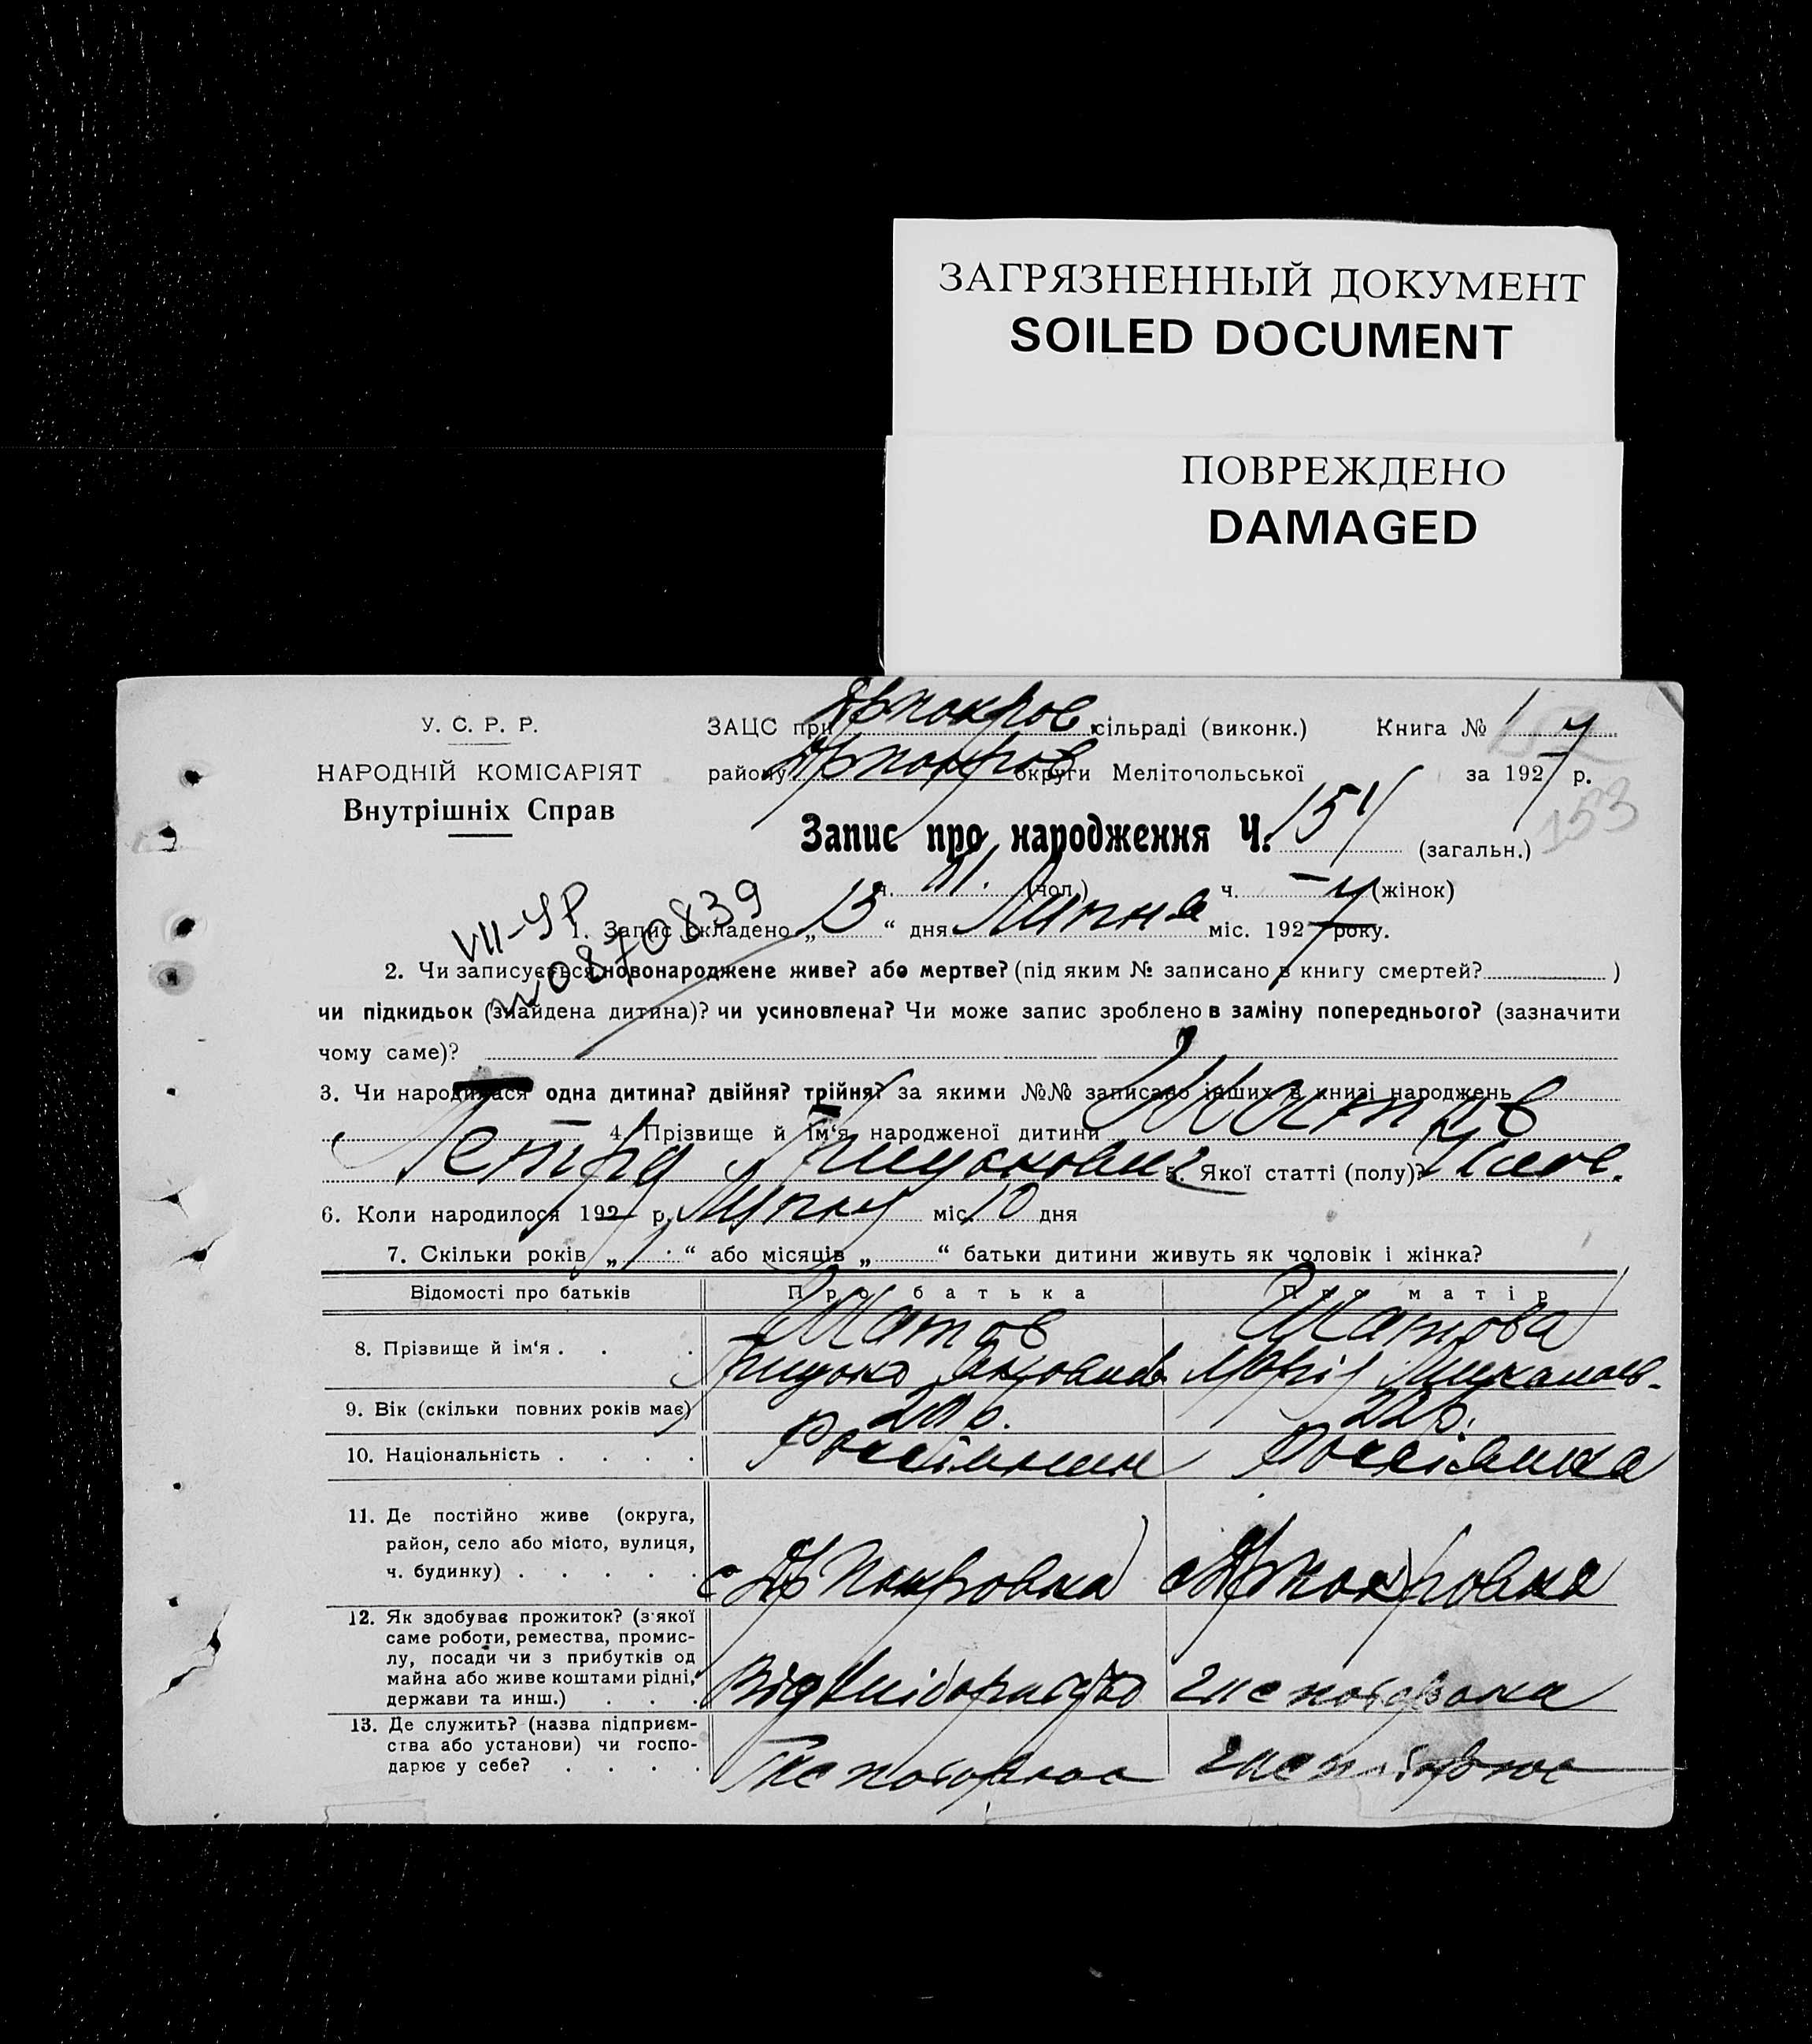 ЗАГРЯЗНЕННЫЙ ДОКУМЕНТ
SOILED DOCUMENT
ПОВРЕЖДЕНО
DAMAGED
У. С. Р. Р.
НАРОДНІЙ КОМІСАРІЯТ
Внутрішніх Справ
ЗАЦС при сільраді (виконк.) Книга № 1
району округи Мелітопольської за 1927 р.
153
Запис про народження Ч. 154 (загальн.)
ч. 81. (чол.) ч. — (жінок)
VII-УР
№ 0870839
1. Запис складено „ 13 “ дня Липня міс. 1927 року.
2. Чи записується новонароджене живе? або мертве? (під яким № записано в книгу смертей? )
чи підкидьок (знайдена дитина)? чи усиновлена? Чи може запис зроблено в заміну попереднього? (зазначити
чому саме)?
3. Чи народилася одна дитина? двійня? трійня? за якими №№ записано інших в книзі народжень
4. Прізвище й ім‘я народженої дитини Шатов
Петро Грицькович 5. Якої статті (полу)? Чолов.
6. Коли народилося 192 р. Липня міс. 10 дня
7. Скільки років „ 1 “ або місяців „ “ батьки дитини живуть як чоловік і жінка?
Відомості про батьків Про батька Про матір
8. Прізвище й ім‘я . . . Шатов Шатова
Грицько Марія
9. Вік (скільки повних років має) 22 р.
10. Національність . . . . Россіянин Россіянка
11. Де постійно живе (округа,
район, село або місто, вулиця,
ч. будинку) . . . . . с Покровка с Покровка
12. Як здобуває прожиток? (з якої
саме роботи, ремества, промис-
лу, посади чи з прибутків од
майна або живе коштами рідні,
держави та инш.) . . . Від хліборобства
13. Де служить? (назва підприєм-
ства або установи) чи госпо-
дарює у себе? . . . .